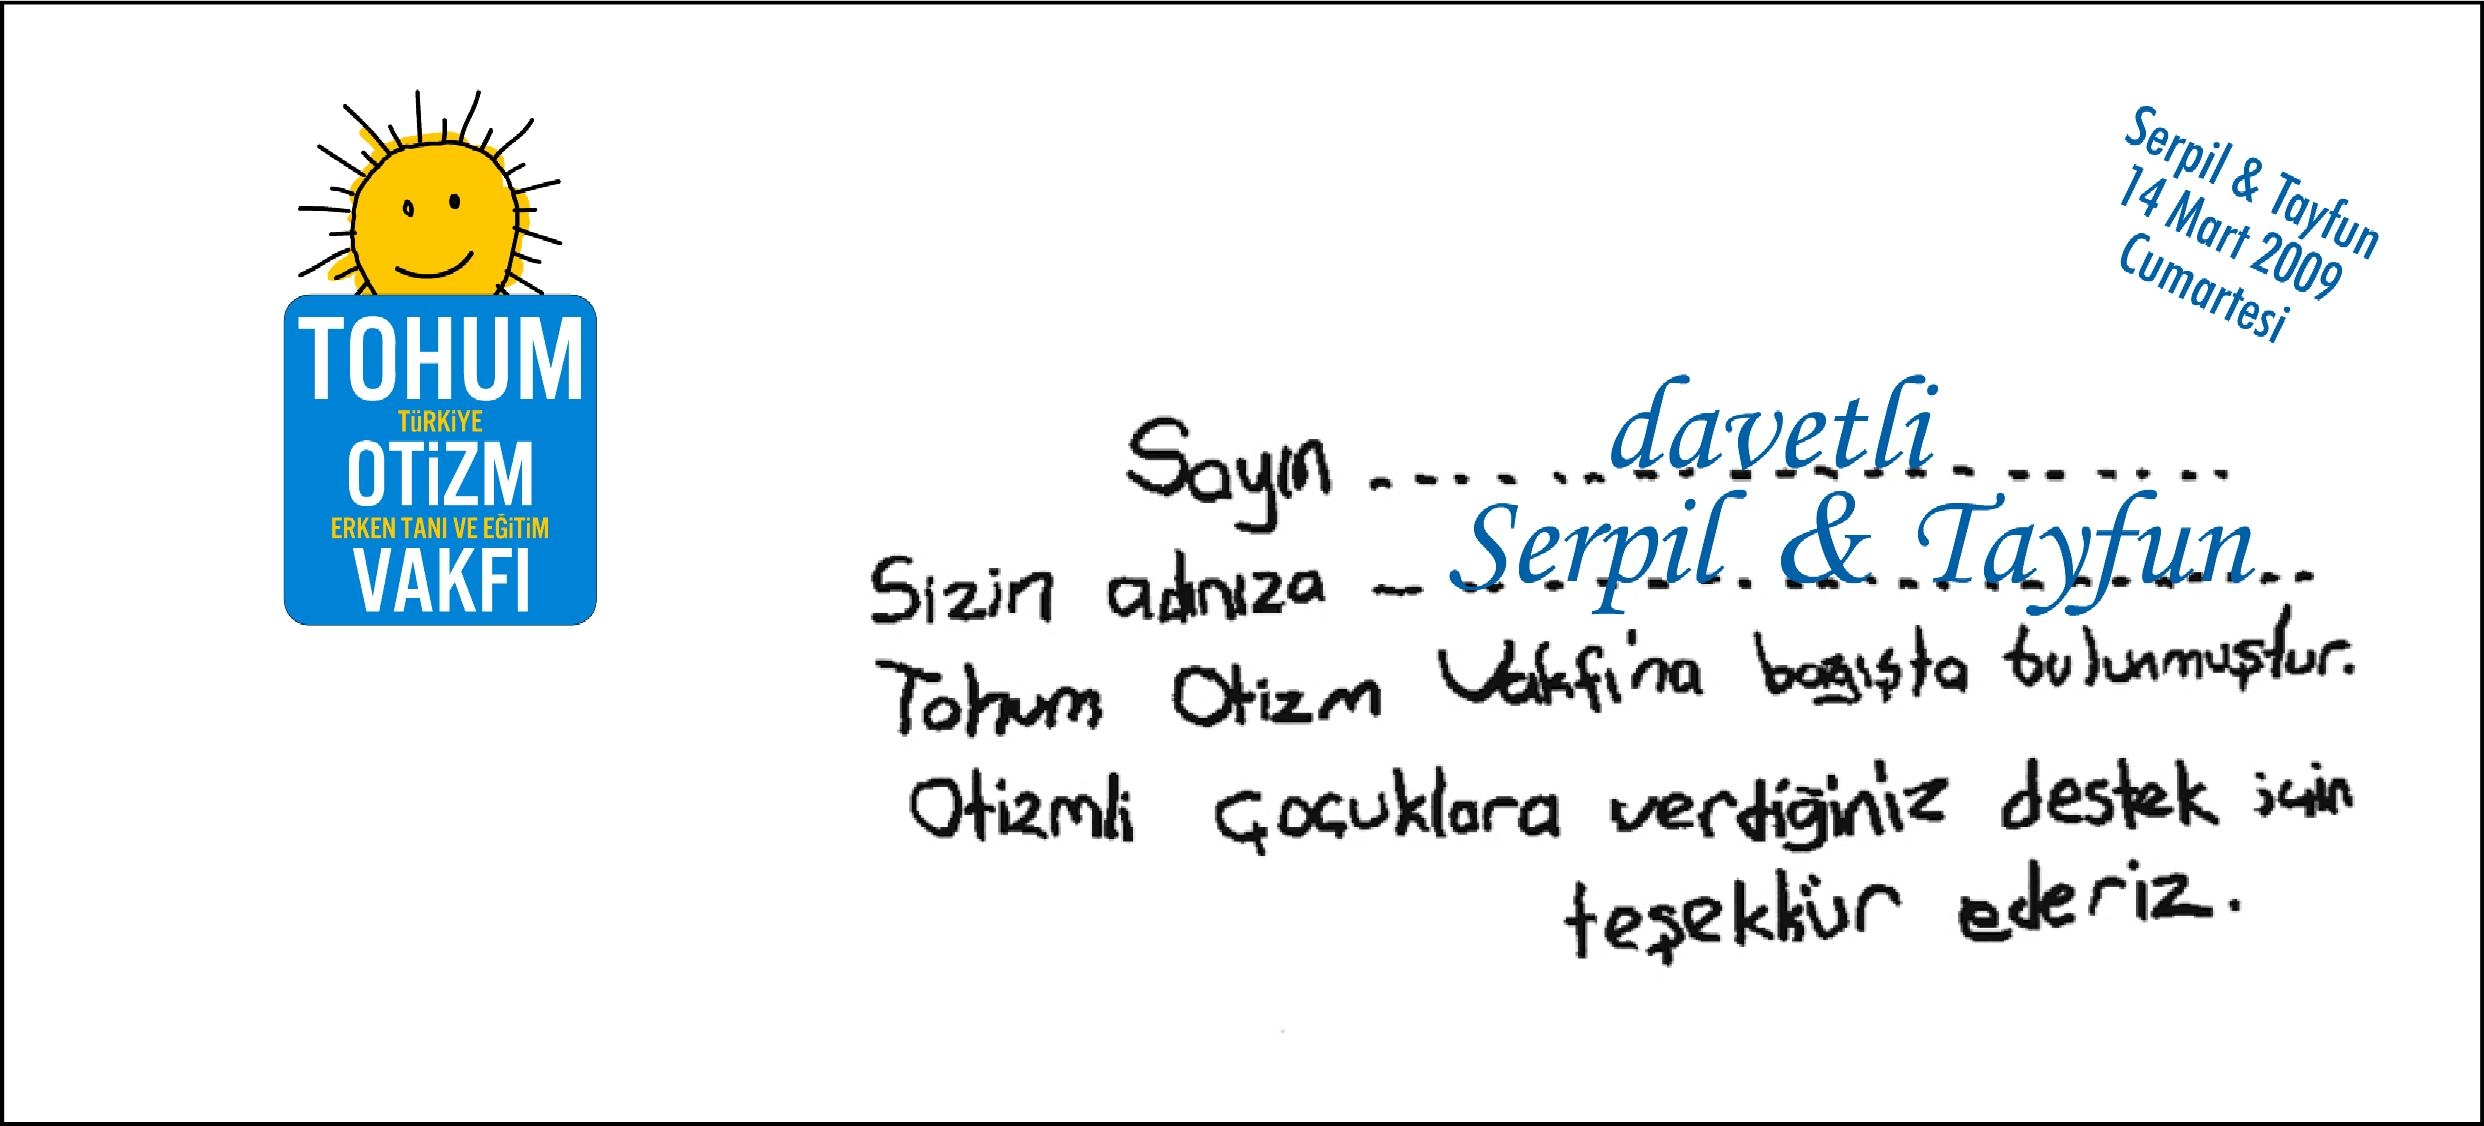 TOHUM
TÜRKİYE
OTİZM
ERKEN TANI VE EĞİTİM
VAKFI
Serpil & Tayfun
14 Mart 2009
Cumartesi
Sayın davetli
Sizin adınıza Serpil & Tayfun
Tohum Otizm Vakfı'na bağışta bulunmuştur.
Otizmli çocuklara verdiğiniz destek için
teşekkür ederiz.